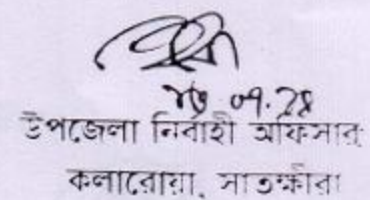 ০৭.২৪
উপজেলা নির্বাহী অফিসার
কলারোয়া, সাতক্ষীরা